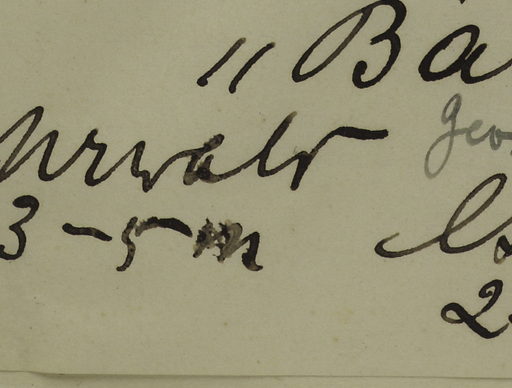 " Ba
Urwald
geo
3-5 m
2